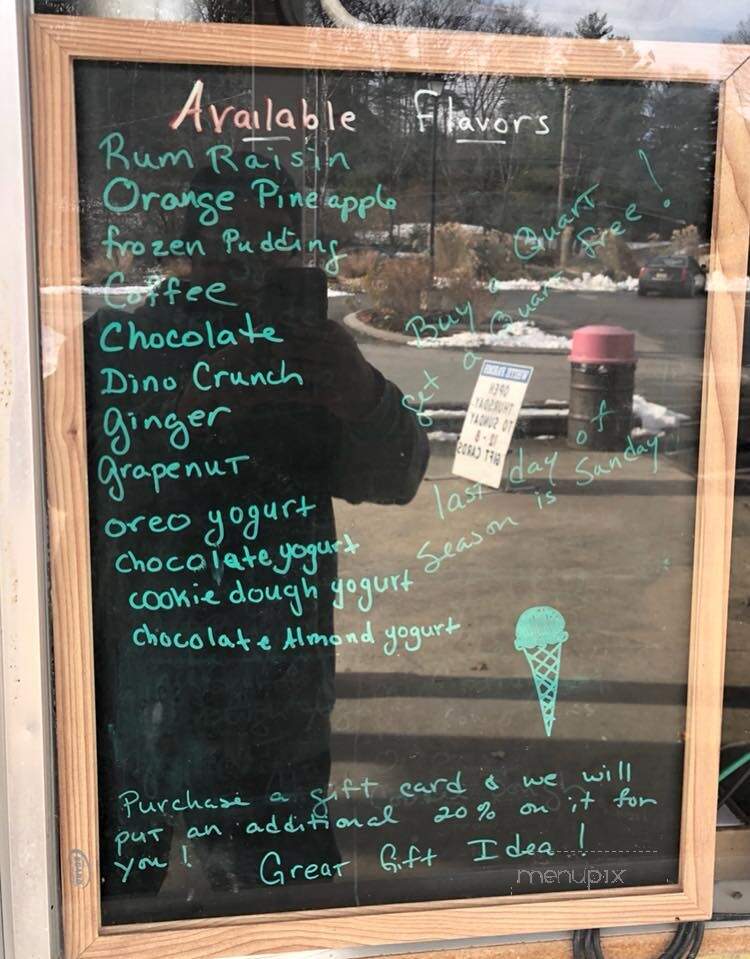 Available Flavors
Rum Raisin
Orange Pineapple
frozen Pudding
Coffee
Chocolate
Dino Crunch
Ginger
Grapenut
oreo yogurt
chocolate yogurt
cookie dough yogurt
chocolate Almond yogurt
Buy a Quart
Get a Quart free!
last day of
Season is Sunday!
Purchase a gift card & we will
put an additional 20% on it for
you!
Great Gift Idea!
OPEN
THURSDAY
TO SUNDAY
12 - 8
GIFT CARDS
menupix